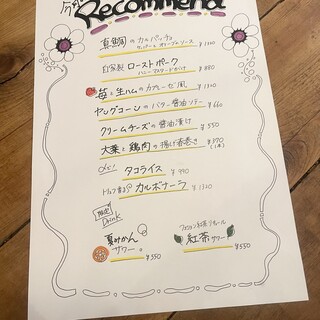 Recommend
真鯛のカルパッチョ
オリーブのソース ¥1320
自家製 ローストポーク
ハニーマスタードがけ ¥880
苺と生ハムのカプレーゼ風 ¥1320
ヤングコーンのバター醤油ソテー ¥660
クリームチーズの醤油漬け ¥550
大葉と鶏肉の揚げ春巻き ¥390
タコライス ¥990
トリュフ香る カルボナーラ ¥1320
限定
Drink
夏みかん
サワー ¥550
紅茶サワー ¥550